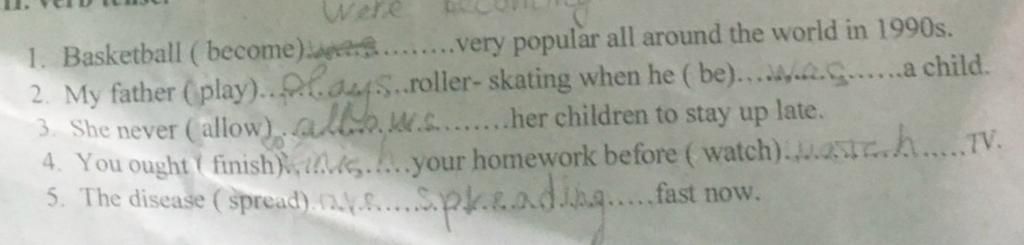 II. Verb tense.
were becoming
1. Basketball ( become)..............very popular all around the world in 1990s.
2. My father ( play)...plays..roller- skating when he ( be)....was......a child.
3. She never ( allow)..allows........her children to stay up late.
4. You ought ( finish)..finish....your homework before ( watch)..watch.....TV.
5. The disease ( spread).are.....spreading.....fast now.